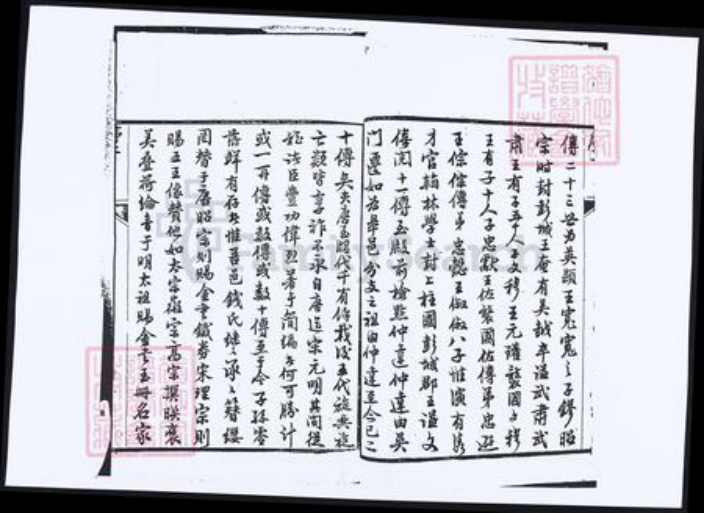 傳二十三世為英顯王寬寬之子鏐昭
宗時封彭城王奄有吳越卒諡武肅武
肅王有子五十人子文穆王元瓘襲國文穆
王有子十人子忠獻王佐襲國佐傳弟忠遜
王倧倧傳弟忠懿王俶俶八子惟演有俊
才官翰林學士封上柱國彭城郡王諡文
僖閱十一傳至殿前檢點仲達仲達由吳
門遷如為畢邑分支之祖由仲達至今已二
十傳矣夫唐至昭代千有餘載後五代旋興旋
亡類皆享祚不永自唐迄宋元明其間從
龍諸臣豐功偉烈著于簡編者何可勝計
或一再傳或數傳或數十傳至于今子孫零
落鮮有存者惟吾邑錢氏蟬聯簪纓
罔替于唐昭宗則賜金書鐵券宋理宗則
賜五王像贊他如太宗真宗高宗撰聯褒
美疊荷綸音于明太祖賜金書玉冊名家
FamilySearch